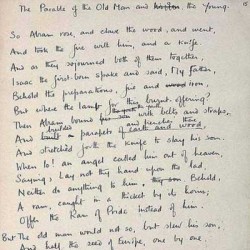 The Parable of the Old Man and the Young.
So Abram rose, and clave the wood, and went,
And took the fire with him, and a knife.
And as they sojourned both of them together,
Isaac the first-born spake and said, My Father,
Behold the preparations, fire and iron,
But where the lamb for this burnt-offering?
Then Abram bound with belts and straps,
builded and trenches there
And built parapets of earth and wood,
And stretched forth the knife to slay his son.
When lo! an angel called him out of heaven,
Saying, Lay not thy hand upon the lad,
Neither do anything to him, Behold,
A ram, caught in a thicket by its horns;
Offer the Ram of Pride instead of him.
But the old man would not so, but slew his son,
And half the seed of Europe, one by one.